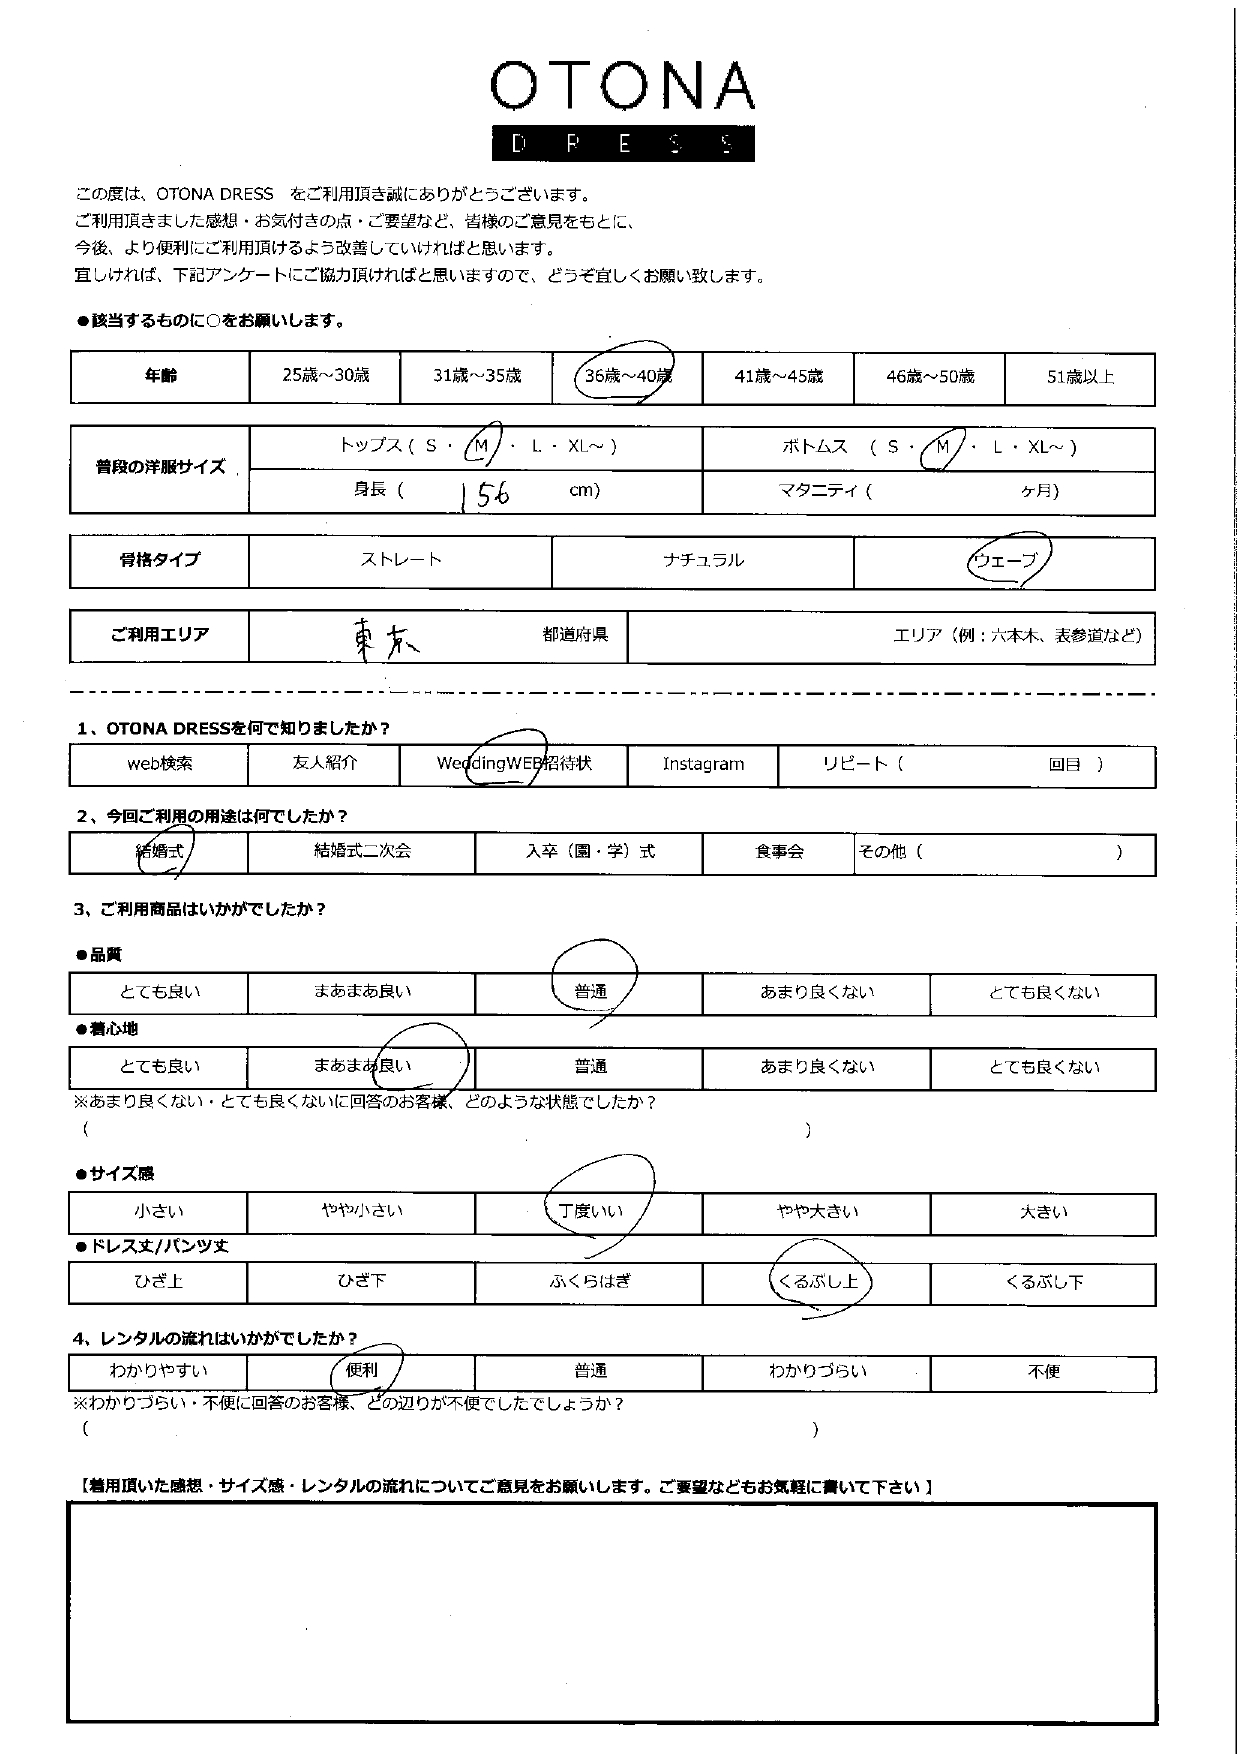 OTONA
DRESS
この度は、OTONA DRESS をご利用頂き誠にありがとうございます。
ご利用頂きました感想・お気付きの点・ご要望など、皆様のご意見をもとに、
今後、より便利にご利用頂けるよう改善していければと思います。
宜しければ、下記アンケートにご協力頂ければと思いますので、どうぞ宜しくお願い致します。
●該当するものに○をお願いします。
年齢 25歳～30歳 31歳～35歳 36歳～40歳 41歳～45歳 46歳～50歳 51歳以上
普段の洋服サイズ トップス ( S ・ M ・ L ・ XL～ ) ボトムス ( S ・ M ・ L ・ XL～ )
身長 ( 156 cm) マタニティ ( ヶ月)
骨格タイプ ストレート ナチュラル ウェーブ
ご利用エリア 東京 都道府県 エリア（例：六本木、表参道など）
1、OTONA DRESSを何で知りましたか？
web検索 友人紹介 WeddingWEB招待状 Instagram リピート（ 回目 ）
2、今回ご利用の用途は何でしたか？
結婚式 結婚式二次会 入卒（園・学）式 食事会 その他（ ）
3、ご利用商品はいかがでしたか？
●品質
とても良い まあまあ良い 普通 あまり良くない とても良くない
●着心地
とても良い まあまあ良い 普通 あまり良くない とても良くない
※あまり良くない・とても良くないに回答のお客様、どのような状態でしたか？
( )
●サイズ感
小さい やや小さい 丁度いい やや大きい 大きい
●ドレス丈/パンツ丈
ひざ上 ひざ下 ふくらはぎ くるぶし上 くるぶし下
4、レンタルの流れはいかがでしたか？
わかりやすい 便利 普通 わかりづらい 不便
※わかりづらい・不便に回答のお客様、どの辺りが不便でしたでしょうか？
( )
【着用頂いた感想・サイズ感・レンタルの流れについてご意見をお願いします。ご要望などもお気軽に書いて下さい 】